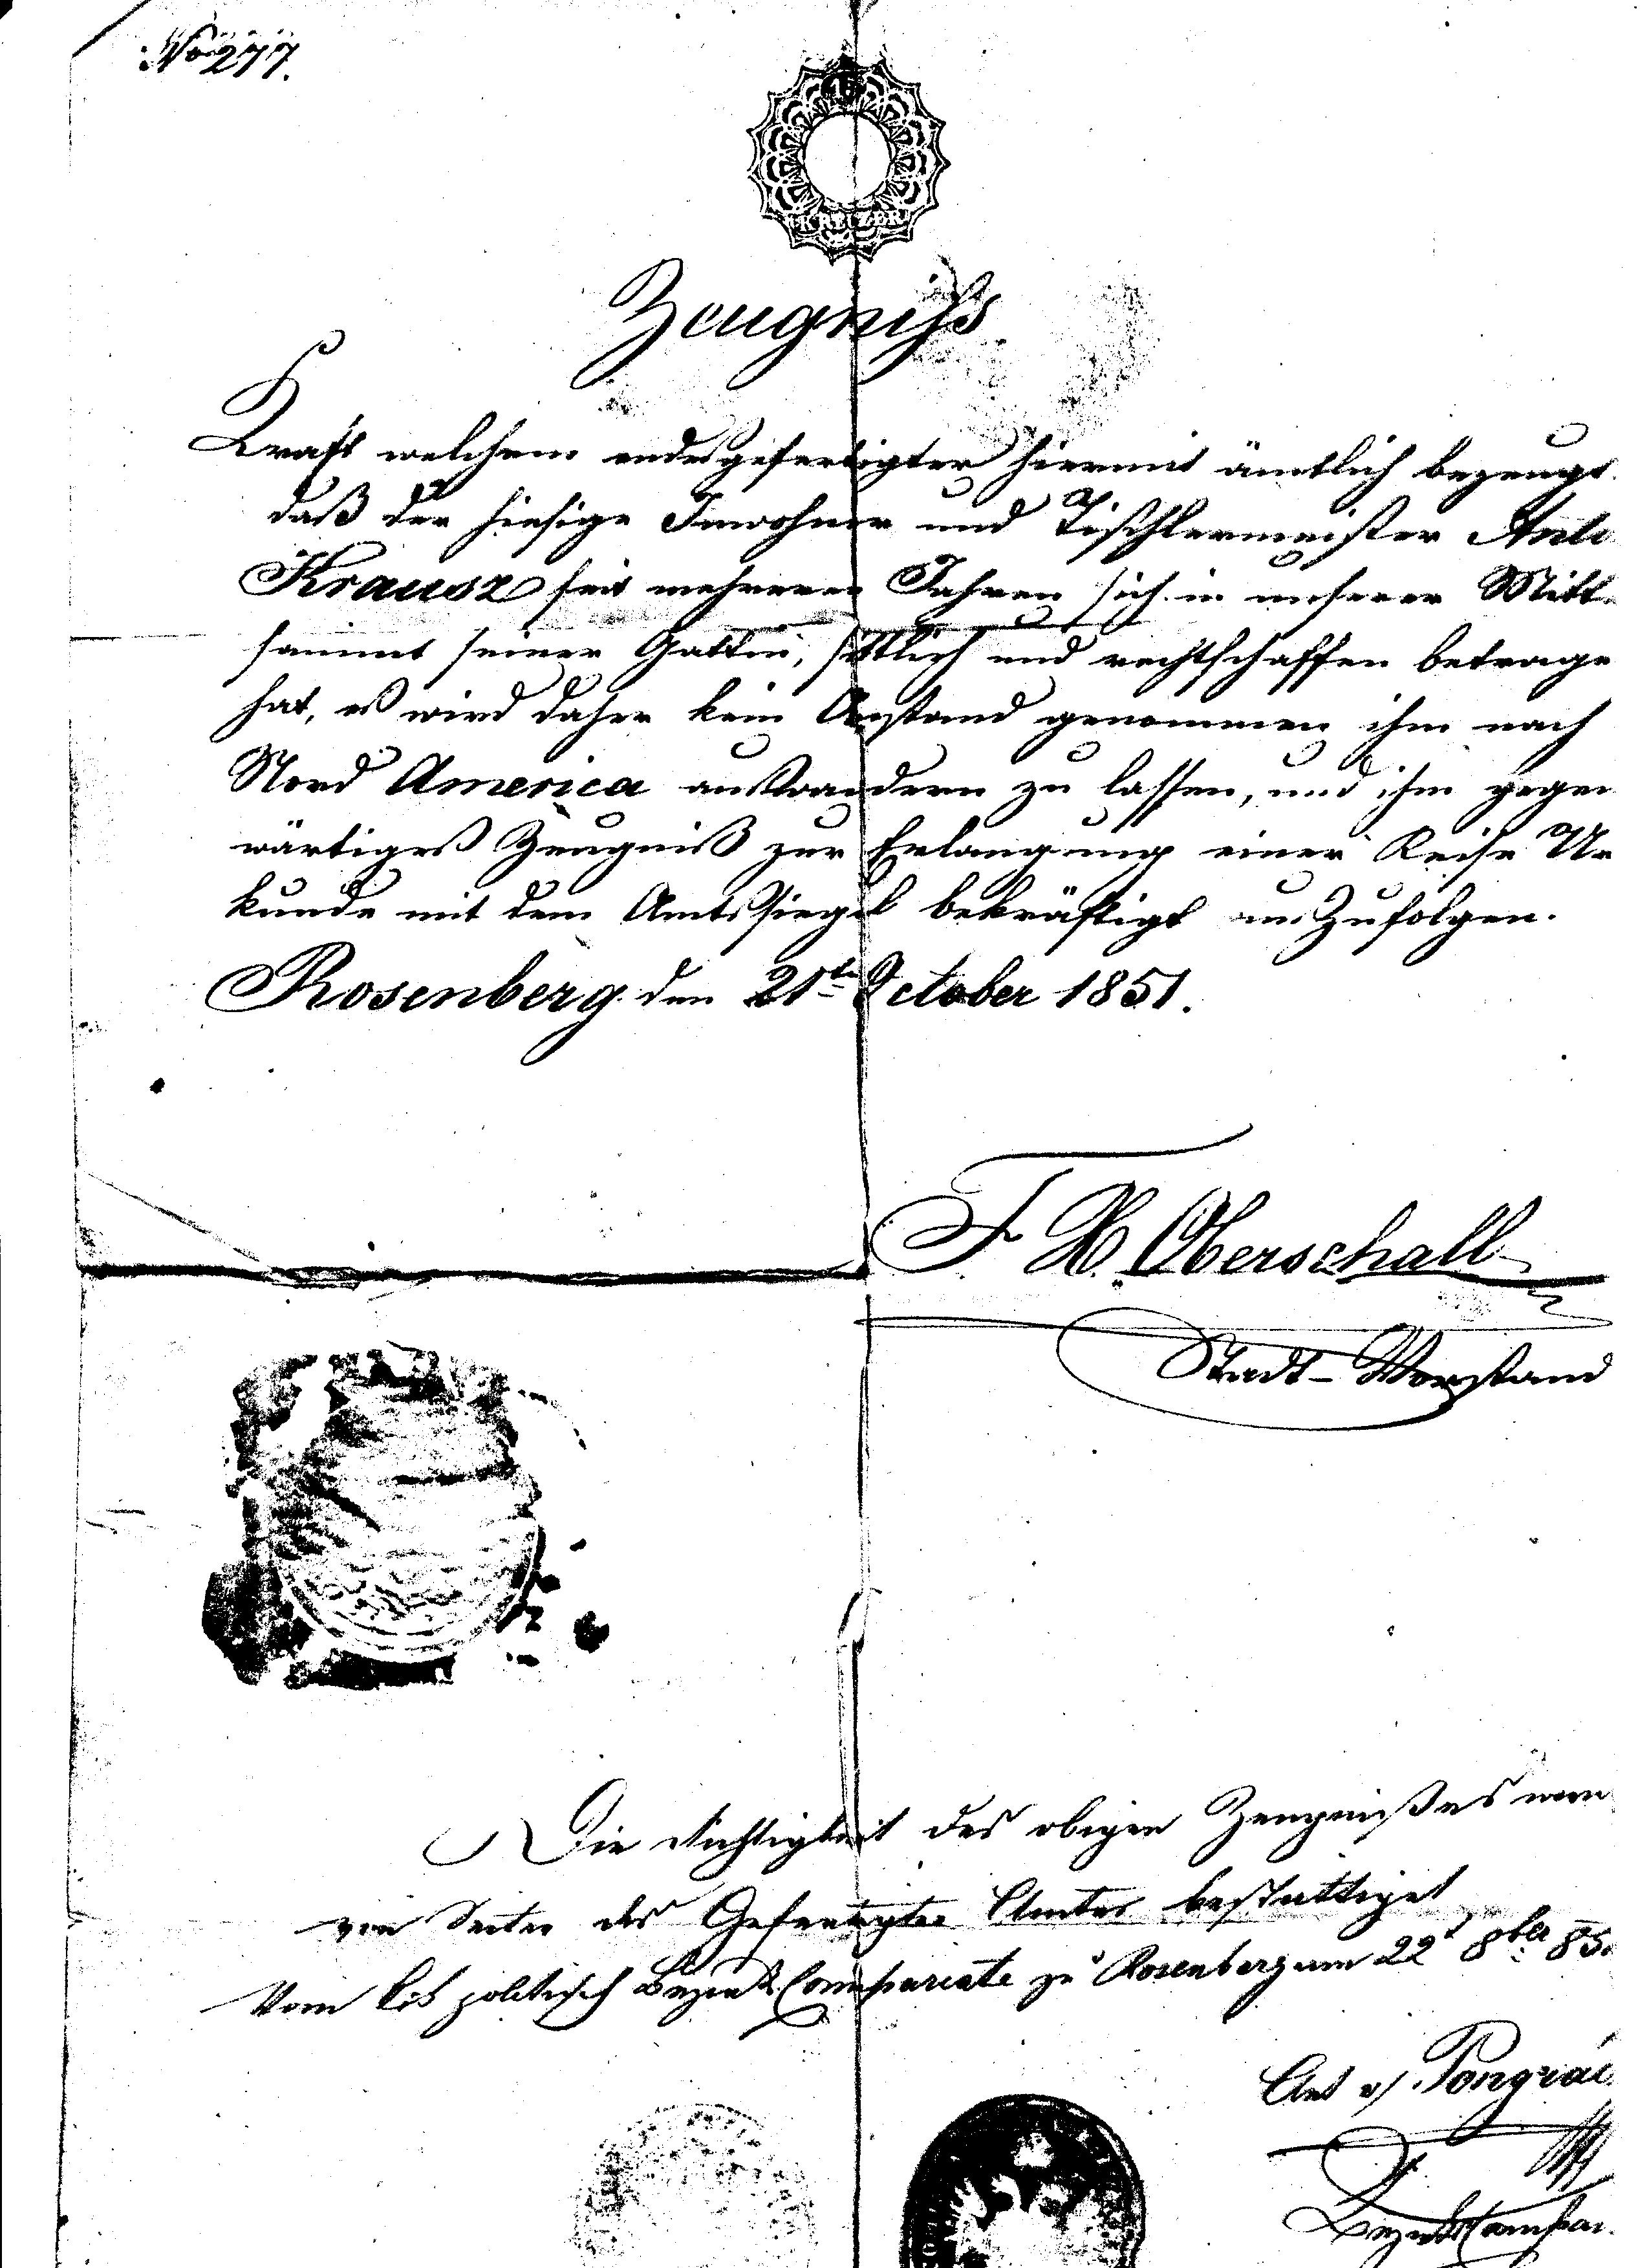 No 277.
KREUZER
Zeugniß
Kraft welchem endesgefertigter hiermit ämtlich bezeugt
daß der hiesige Inwohner und Tischlermeister Anto
Krausz seit mehreren Jahren sich in unserer Mitte
sammt seiner Gattin, sittlich und rechtschaffen betrage
hat, es wird daher kein Anstand genommen ihm nach
Nord America auswandern zu lassen, und ihm gegen
wärtiges Zeugniß zur Erlangung einer Reise Ur
kunde mit dem Amtssiegel bekräftigt auszufolgen.
Rosenberg den 21te October 1851.
F X. Oberschall
Stadt-Vorstand
Die Richtigkeit des obigen Zeugnißes
von Seiten des Gefertigten Amtes bestättiget
Vom politisch Bezirks Comissariate zu Rosenberg am 22t 8ber 85
Ant v Pongrác